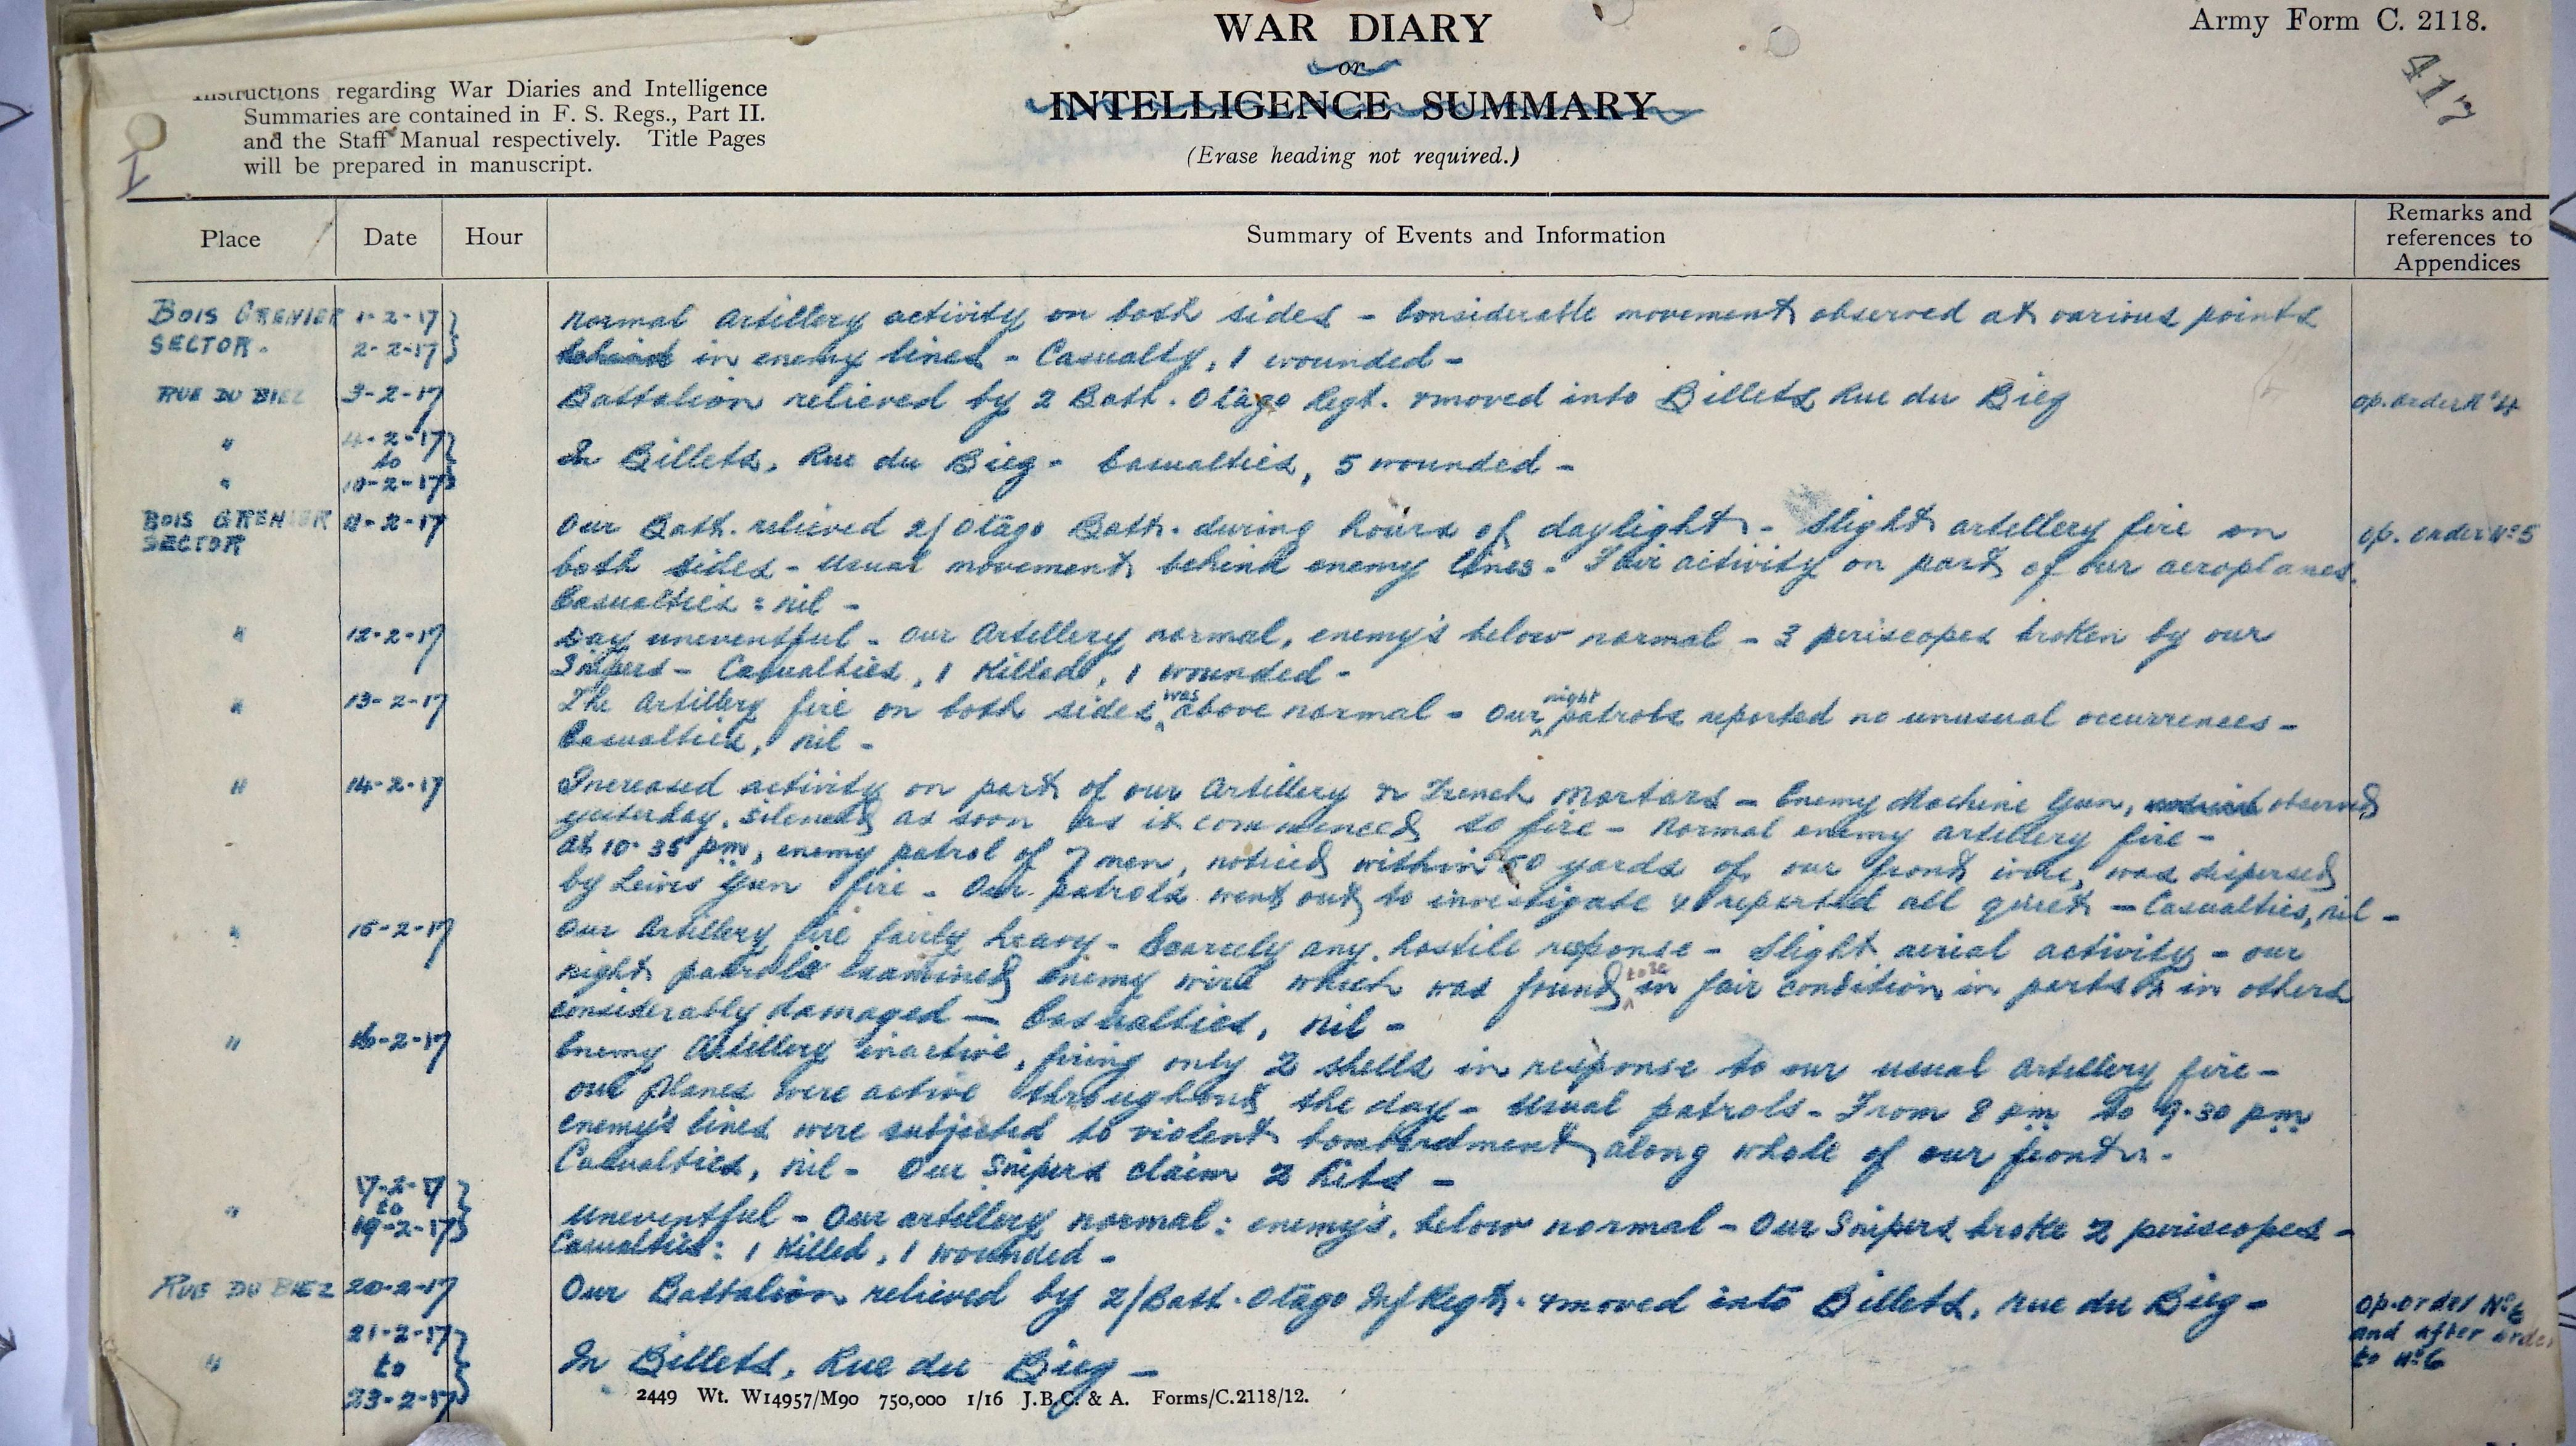 WAR DIARY
or
INTELLIGENCE SUMMARY
(Erase heading not required.)
Army Form C. 2118.
417
Instructions regarding War Diaries and Intelligence
Summaries are contained in F. S. Regs., Part II.
and the Staff Manual respectively. Title Pages
will be prepared in manuscript.
Place Date Hour Summary of Events and Information Remarks and references to Appendices
BOIS GRENIER 1-2-17 Normal Artillery activity on both sides - Considerable movement observed at various points
SECTOR. 2-2-17 behind in enemy lines - Casualty, 1 wounded -
RUE DU BIEZ 3-2-17 Battalion relieved by 2 Batt. Otago Regt. & moved into Billets Rue du Bieg Op. order No 4
" 4-2-17
to In Billets, Rue du Bieg - Casualties, 5 wounded -
" 10-2-17
BOIS GRENIER 11-2-17 Our Batt. relieved 2/Otago Batt. during hours of daylight - Slight artillery fire on Op. order No 5
SECTOR both sides - Usual movement behind enemy lines - Fair activity on part of our aeroplanes.
Casualties = nil -
" 12-2-17 Day uneventful - Our Artillery normal, enemy's below normal - 3 periscopes broken by our
Snipers - Casualties, 1 Killed, 1 wounded -
" 13-2-17 The Artillery fire on both sides was above normal - Our night patrols reported no unusual occurrences -
Casualties, nil -
" 14-2-17 Increased activity on part of our Artillery & Trench Mortars - Enemy Machine Gun, noticed observed
yesterday, silenced as soon as it commenced to fire - Normal enemy artillery fire -
At 10-35 pm, enemy patrol of 7 men, noticed within 50 yards of our front wire, was dispersed
by Lewis Gun fire - Our patrols went out to investigate & reported all quiet - Casualties, nil -
" 15-2-17 Our Artillery fire fairly heavy - Scarcely any hostile response - Slight aerial activity - Our
night patrols examined enemy wire which was found to be in fair condition in parts & in others
considerably damaged - Casualties, nil -
" 16-2-17 Enemy Artillery inactive, firing only 2 shells in response to our usual Artillery fire -
Our Planes were active throughout the day - Usual patrols - From 8 pm to 9.30 pm
enemy's lines were subjected to violent bombardment along whole of our front -
Casualties, nil - Our Snipers claim 2 hits -
17-2-17
to
" 19-2-17 Uneventful - Our artillery normal: enemy's, below normal - Our Snipers broke 2 periscopes -
Casualties: 1 Killed, 1 wounded -
RUE DU BIEZ 20-2-17 Our Battalion relieved by 2/Batt. Otago Inf Regt. & moved into Billets, Rue du Bieg - Op. order No 6
21-2-17 and after order
" to In Billets, Rue du Bieg - to No 6
23-2-17
2449 Wt. W14957/M90 750,000 1/16 J.B.C. & A. Forms/C.2118/12.